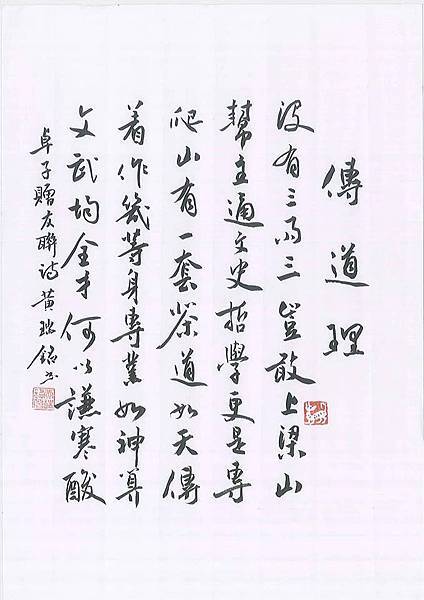 傳道理
没有三両三豈敢上梁山
幫主通文史哲學更是專
爬山有一套茶道如天傳
着作幾等身專業如神算
文武均全才何以謙寒酸
卓子贈友聯詩 黃瑞銘书